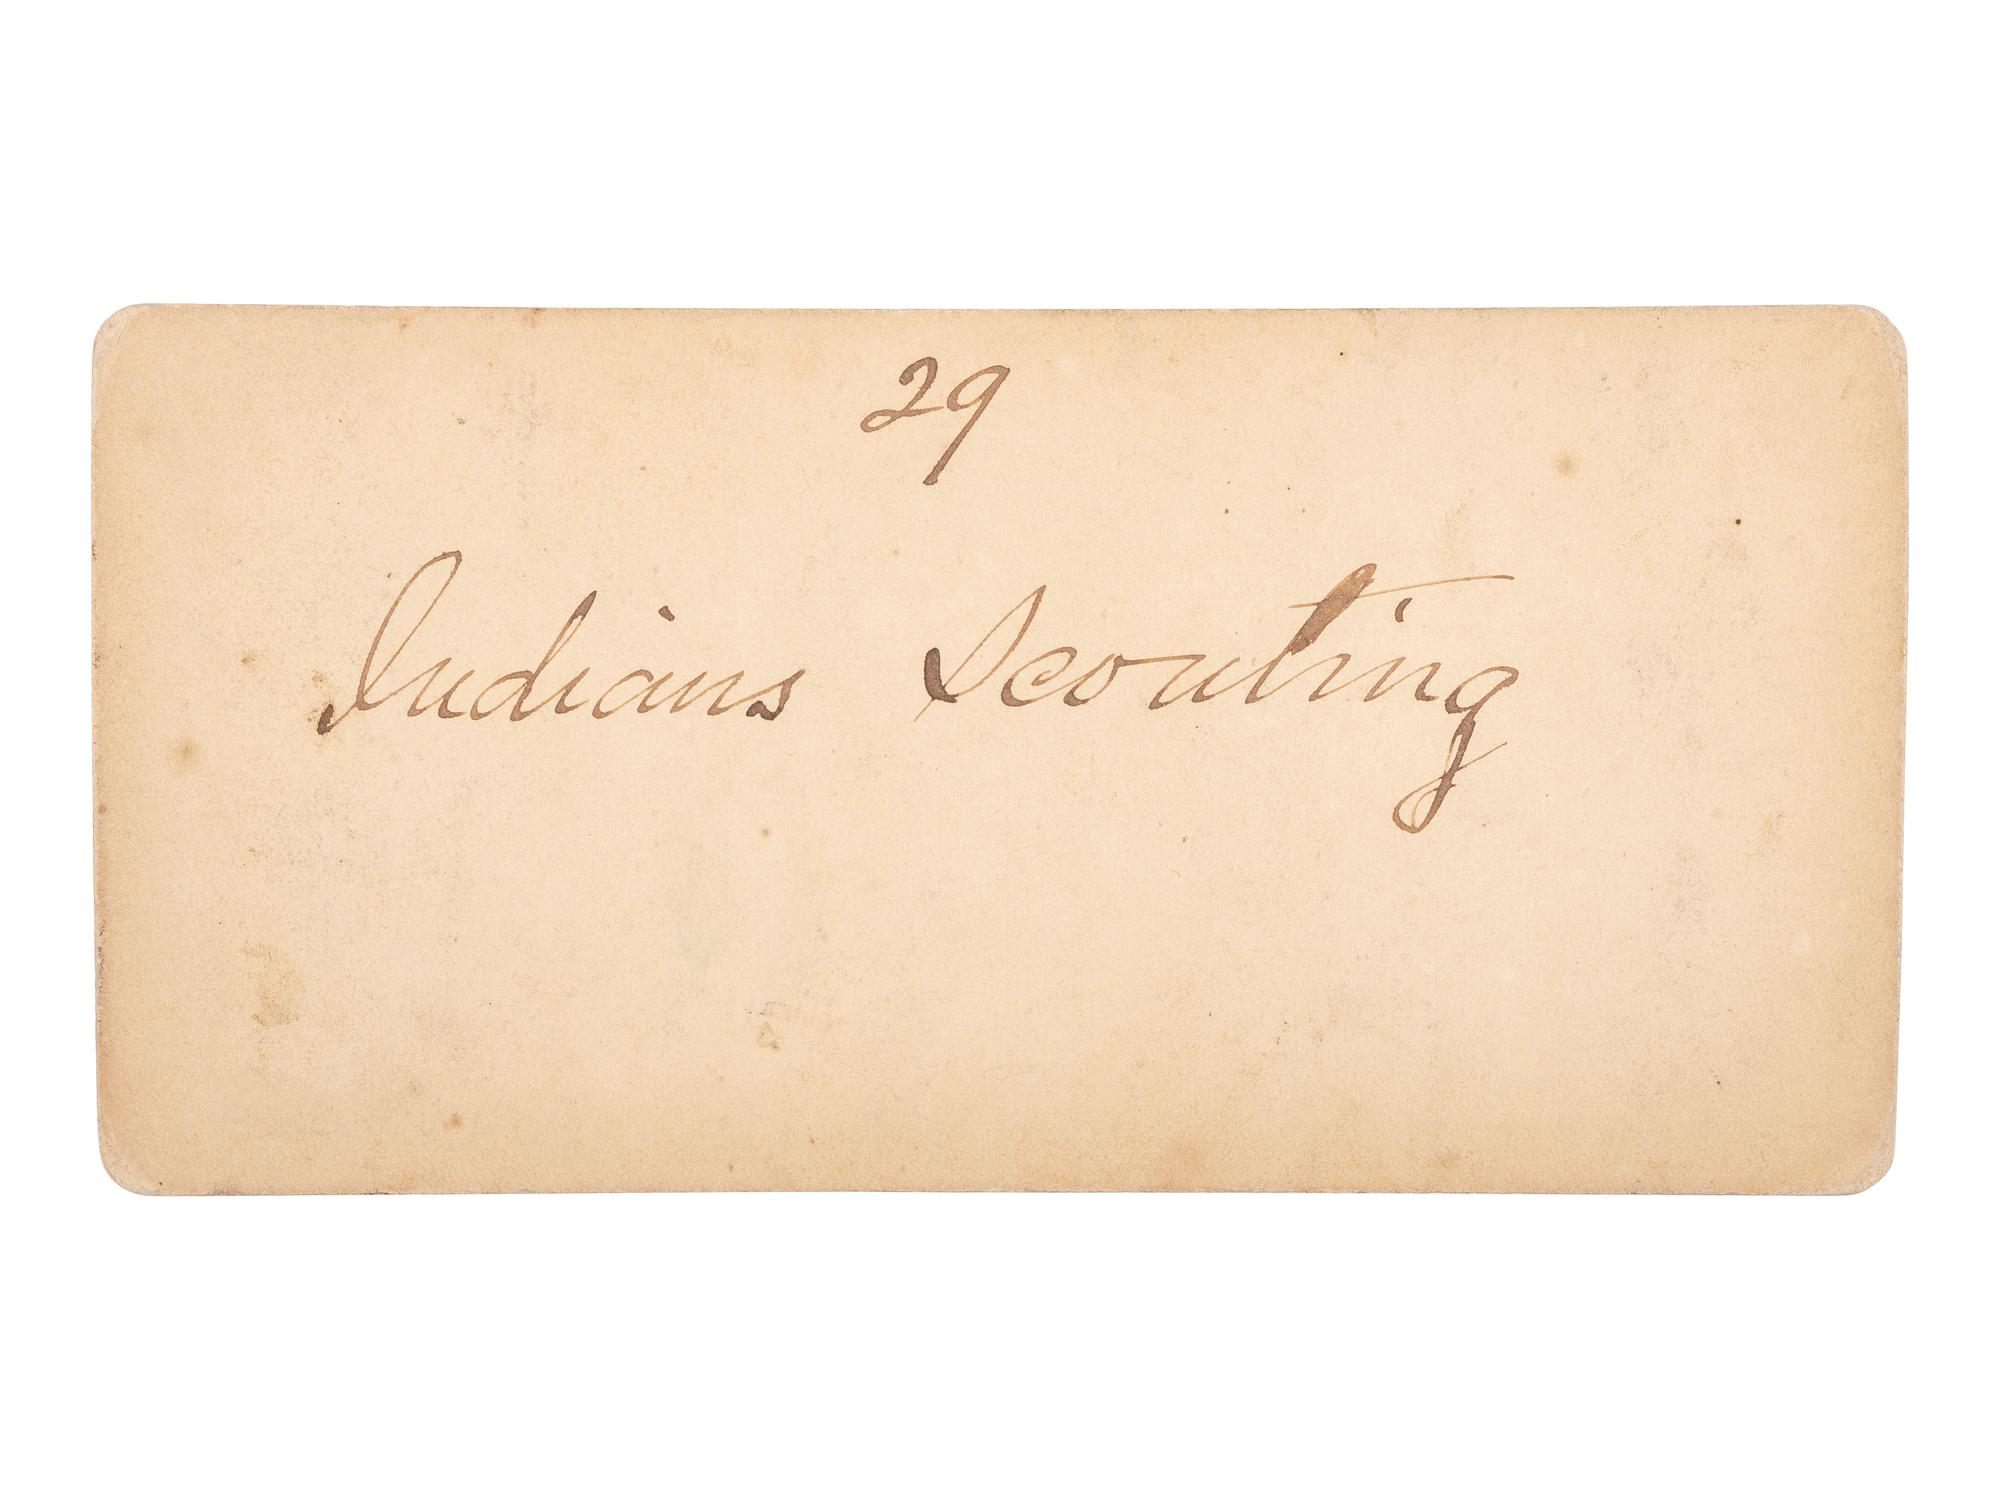 29
Indians Scouting